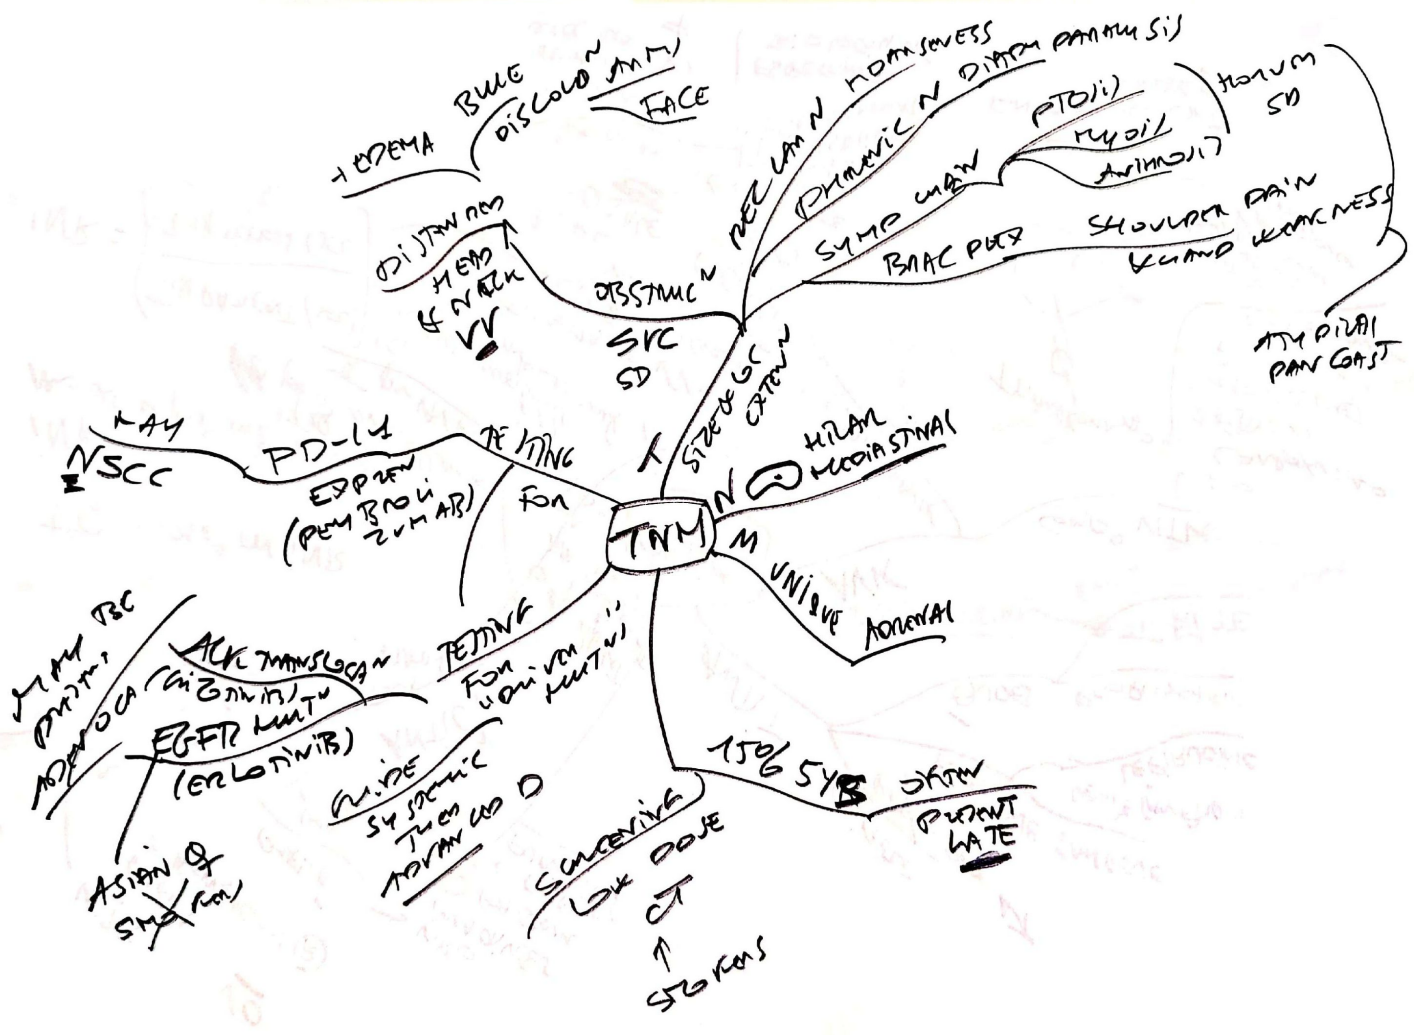 BLUE
DISCOLO^N
ARMS
FACE
+ EDEMA
DISTENDED
HEAD
& NECK
VV
OBSTRUC^N
SVC
SD
REC LAR N HOARSENESS
PHRENIC N DIAPH PARALYSIS
SYMP CHAIN
PTOSIS
MYOSIS
ANHIDROSIS
HORNER
SD
BRAC PLEX
SHOULDER PAIN
& HAND WEAKNESS
ATYPICAL
PANCOAST
T
SIZE & LOC
EXTEN^N
TNM
N
HILAR
MEDIASTINAL
M
UNIQUE
ADRENAL
15% 5YS
OFTEN
PRESENT
LATE
SCREENING
LOW DOSE
CT
↑
SMOKERS
TESTING
FOR
PD-L1
EXPREN
(PEMBROLI
ZUMAB)
NSCC
TESTING
FOR
"DRIVER
MUT^NS"
GUIDE
SYSTEMIC
THER
ADVANCED D
ALK TRANSLOCA^N
(CRIZOTINIB)
EGFR MUT^N
(ERLOTINIB)
ADENOCA
ASIAN ♀
SMOKERS